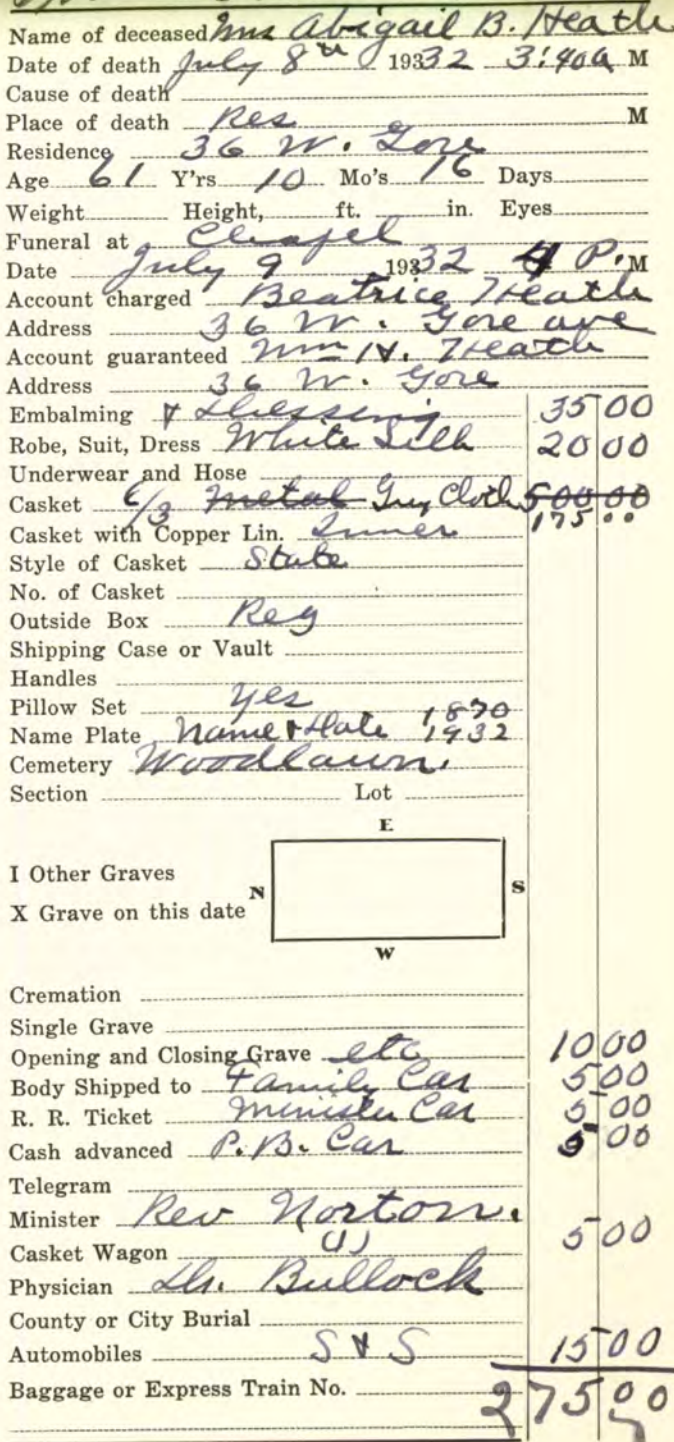 Name of deceased Mrs Abigail B. Heath
Date of death July 8th 1932 3:40 A M
Cause of death
Place of death Res M
Residence 36 W. Gore
Age 61 Y'rs 10 Mo's 16 Days
Weight Height, ft. in. Eyes
Funeral at Chapel
Date July 9 1932 4 P. M
Account charged Beatrice Heath
Address 36 W. Gore ave
Account guaranteed Wm H. Heath
Address 36 W. Gore
Embalming & Dressing 35 00
Robe, Suit, Dress White Silk 20 00
Underwear and Hose
Casket 6/3 Metal Grey Cloth 500 00
175 00
Casket with Copper Lin. Inner
Style of Casket State
No. of Casket
Outside Box Reg
Shipping Case or Vault
Handles
Pillow Set Yes
Name Plate Name & Date 1870 1932
Cemetery Woodlawn.
Section Lot
E
I Other Graves
N S
X Grave on this date
W
Cremation
Single Grave
Opening and Closing Grave etc 10 00
Body Shipped to Family Car 5 00
R. R. Ticket Minister Car 5 00
Cash advanced P. B. Car 5 00
Telegram
Minister Rev Norton. 5 00
Casket Wagon (1)
Physician Dr. Bullock
County or City Burial
Automobiles S & S 15 00
Baggage or Express Train No. 275 00